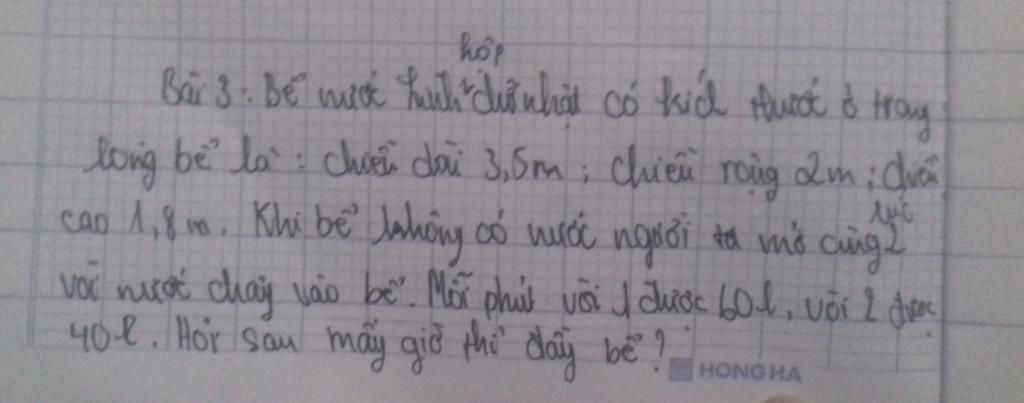 hộp
Bài 3: Bể nước hình chữ nhật có kích thước ở trong
lòng bể là: chiều dài 3,5m; chiều rộng 2m; chiều
cao 1,8m. Khi bể không có nước người ta mở cùng lúc 2
vòi nước chảy vào bể. Mỗi phút vòi 1 được 60l, vòi 2 được
40l. Hỏi sau mấy giờ thì đầy bể?
HONG HA